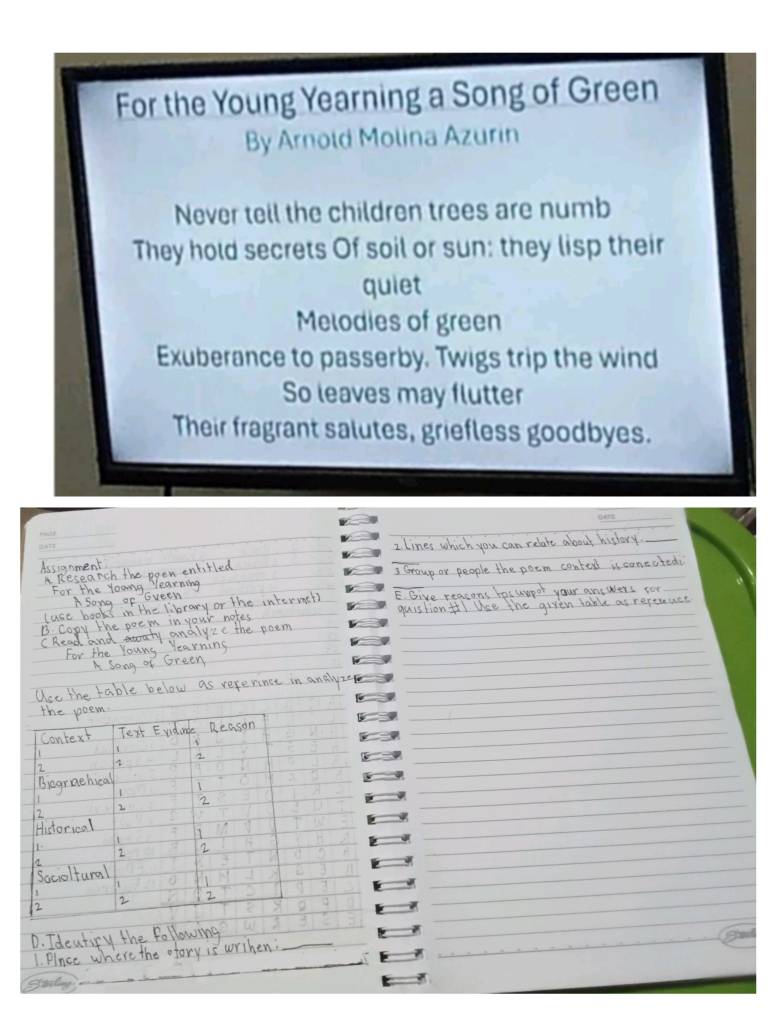 For the Young Yearning a Song of Green
By Arnold Molina Azurin
Never tell the children trees are numb
They hold secrets Of soil or sun: they lisp their
quiet
Melodies of green
Exuberance to passerby. Twigs trip the wind
So leaves may flutter
Their fragrant salutes, griefless goodbyes.
PAGE
DATE
Assignment:
A. Research the poen entitled
For the Young Yearning
A Song of Green
(use books in the library or the internet)
B. Copy the poem in your notes
C. Read and analyze the poem
For the Young Yearning
A Song of Green
Use the table below as reference in analyze
the poem.
Context Text Evidence Reason
1 1 1
2 2 2
Biograehical
1 1 1
2 2 2
Historical
1. 1 1
2 2 2
Socioltural
1 1 1
2 2 2
D. Identify the following
1. Place where the story is writhen:
Sterling
DATE
2. Lines which you can relate about history.
3. Group or people the poem context is conected:
E. Give reasons to support your answers for
quistion #1 Use the given table as reference